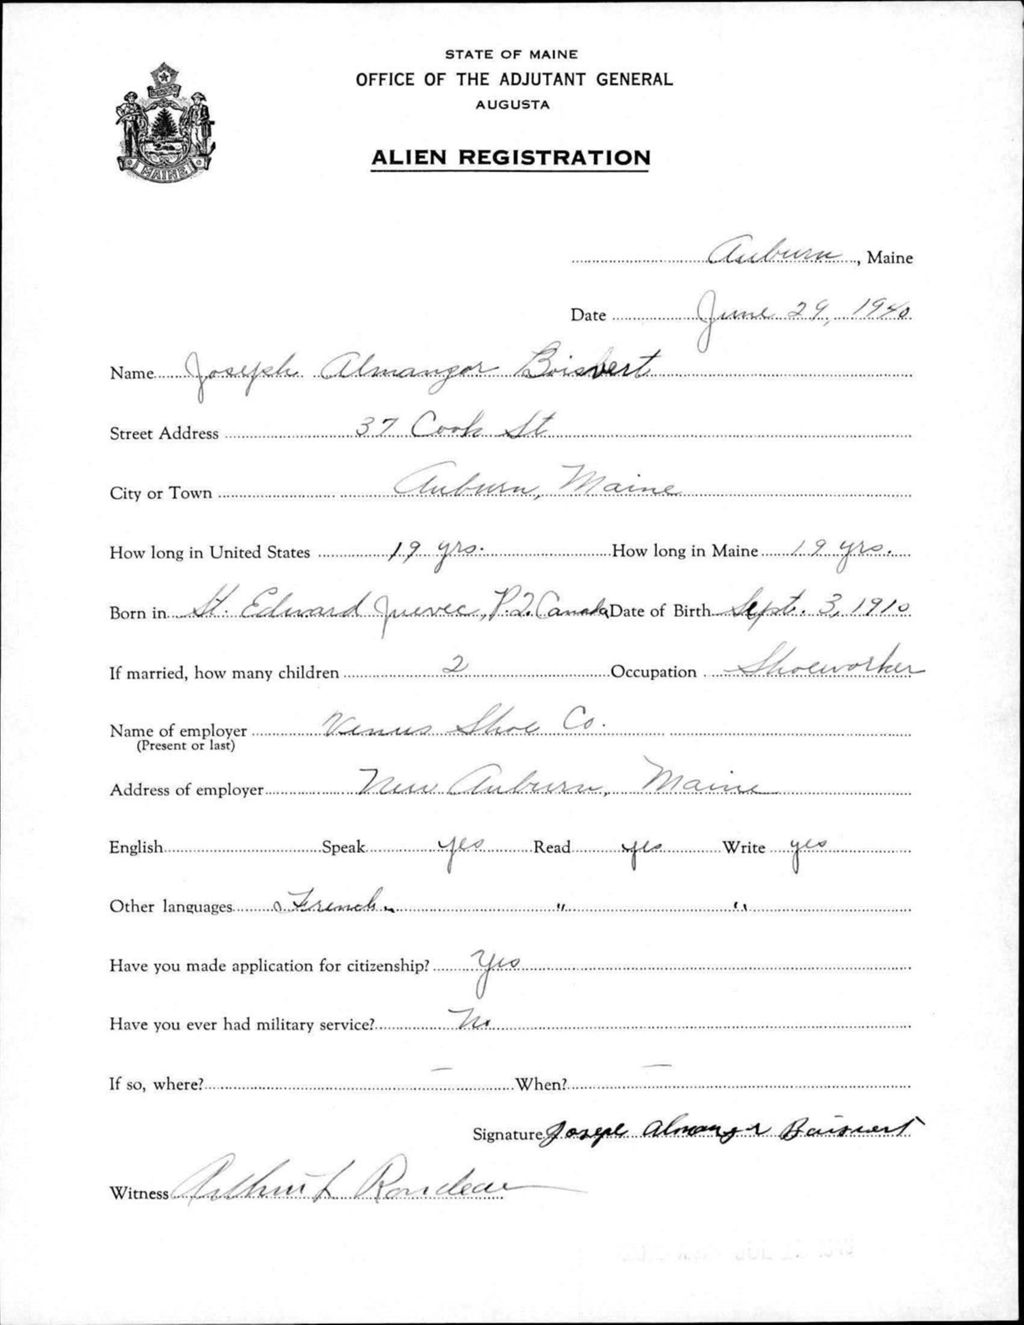 STATE OF MAINE
OFFICE OF THE ADJUTANT GENERAL
AUGUSTA
MAINE
ALIEN REGISTRATION
Auburn, Maine
Date June 29, 1940
Name Joseph Almangor Boisvert
Street Address 37 Cook St
City or Town Auburn, Maine
How long in United States 19 yrs. How long in Maine 19 yrs.
Born in St. Edward P.Q. Canada Date of Birth Sept. 3, 1910
If married, how many children 2 Occupation Shoeworker
Name of employer Venus Shoe Co.
(Present or last)
Address of employer New Auburn, Maine
English Speak yes Read yes Write yes
Other languages French " "
Have you made application for citizenship? Yes
Have you ever had military service? No
If so, where? — When? —
Signature Almangor
Witness Arthur L Rondeau